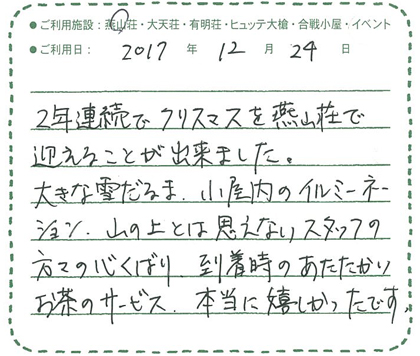 ●ご利用施設：燕山荘・大天荘・有明荘・ヒュッテ大槍・合戦小屋・イベント
●ご利用日： 2017 年 12 月 24 日
2年連続で クリスマスを 燕山荘で
迎えることが出来ました。
大きな雪だるま、小屋内のイルミネー
ション、山の上とは思えないスタッフの
方々の心くばり、到着時のあたたかい
お茶のサービス、本当に嬉しかったです。